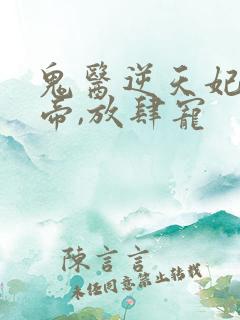 鬼醫逆天妃
帝,放肆寵
陳言言
未经同意禁止转载